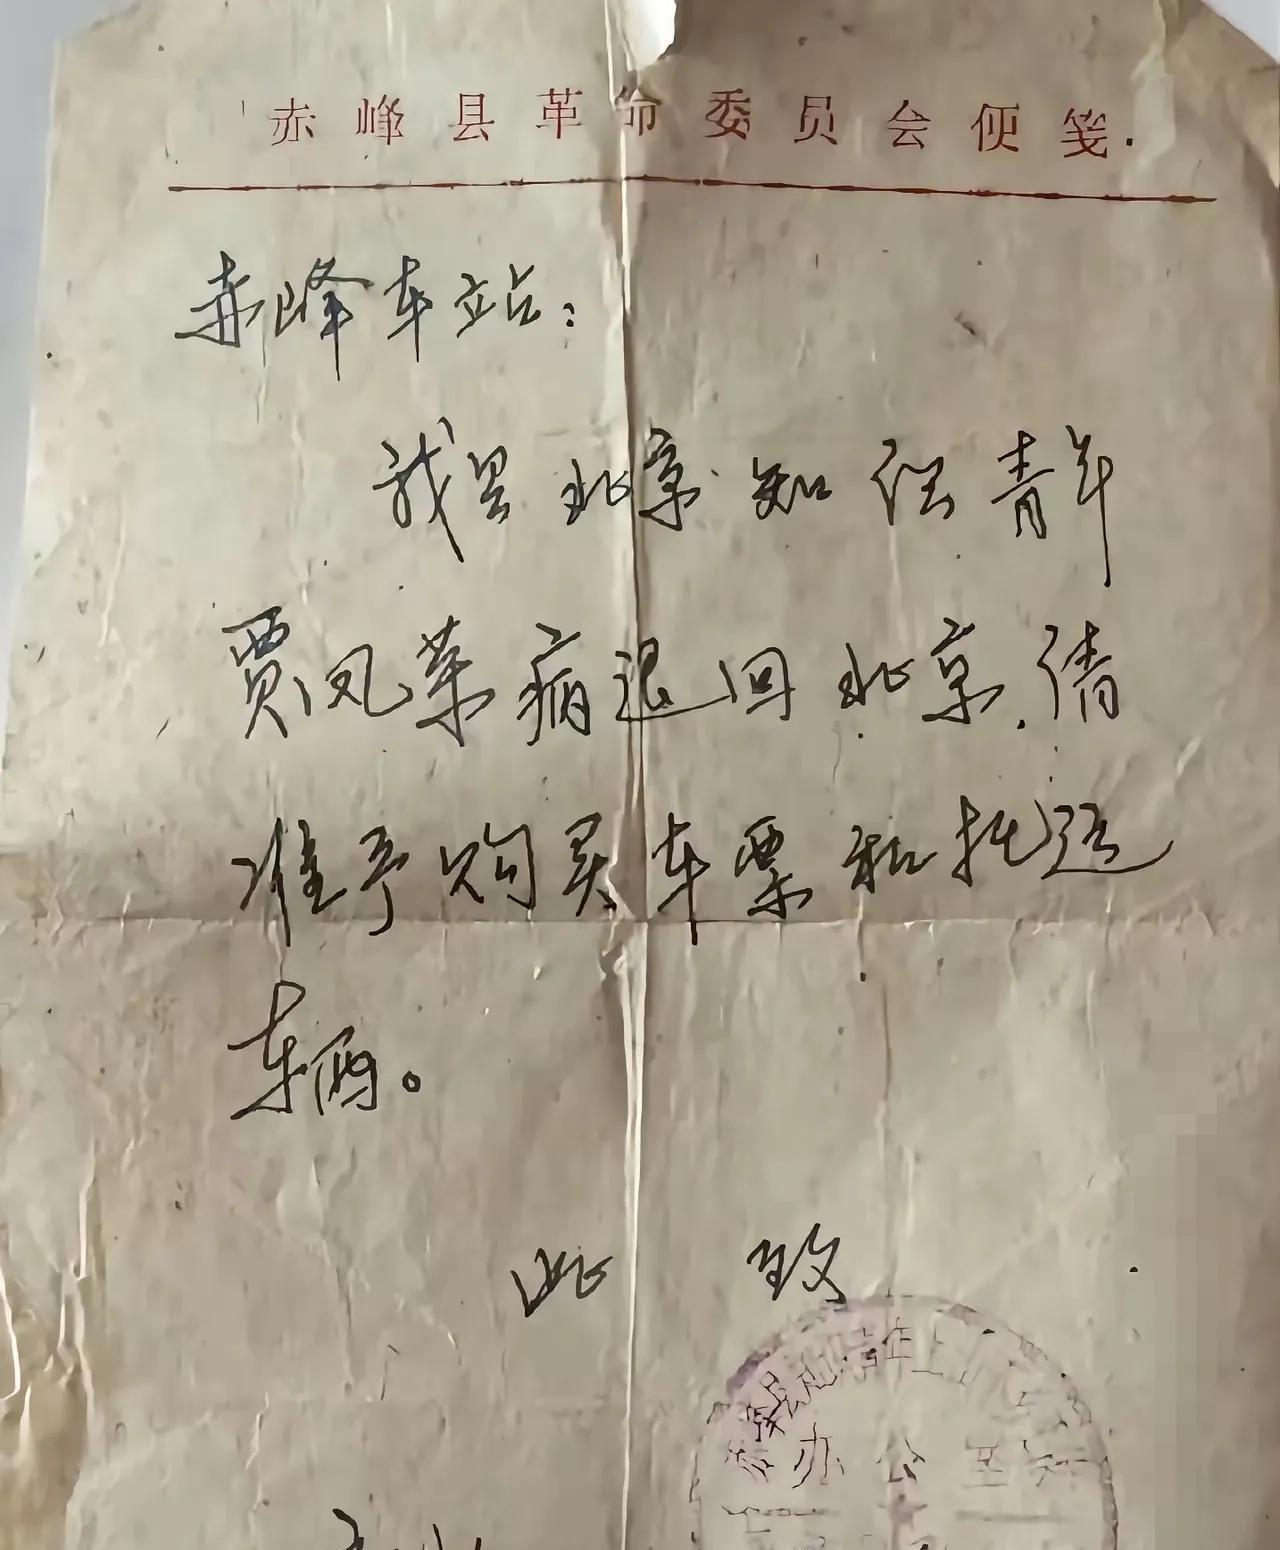 赤峰县革命委员会便笺.
赤峰车站：
我县北京知识青年
贾凤荣病退回北京.请
准予购买车票和托运
车辆。
此 致
办公室